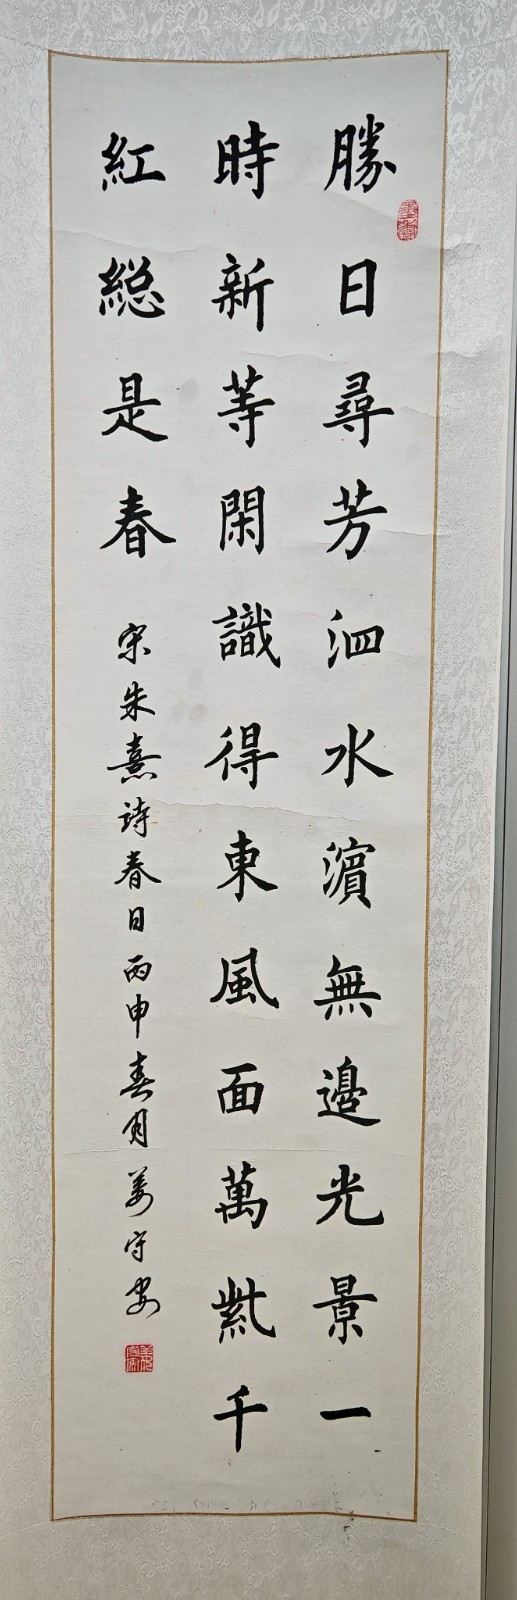 勝日尋芳泗水濵無邊光景一
時新等閑識得東風面萬紫千
紅総是春
宋朱熹詩春日丙申春月姜守安